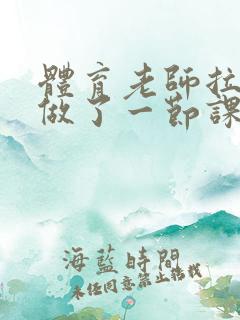 體育老師拉
做了一節課
海藍時間
未任同意禁止轉載